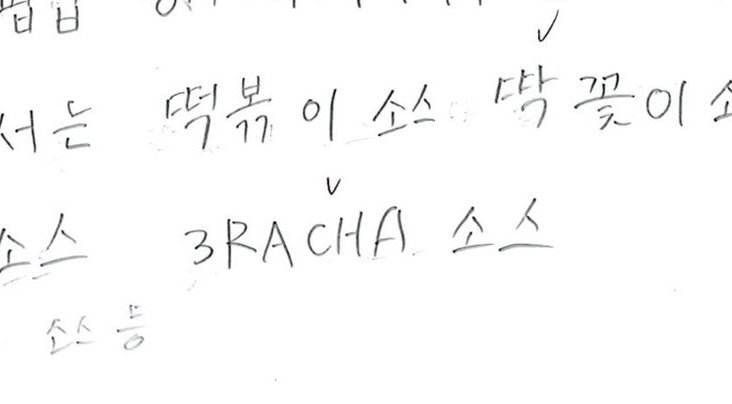 서는 떡볶이 소스 딱꽃이 소
소스 3RACHA 소스
소스 등